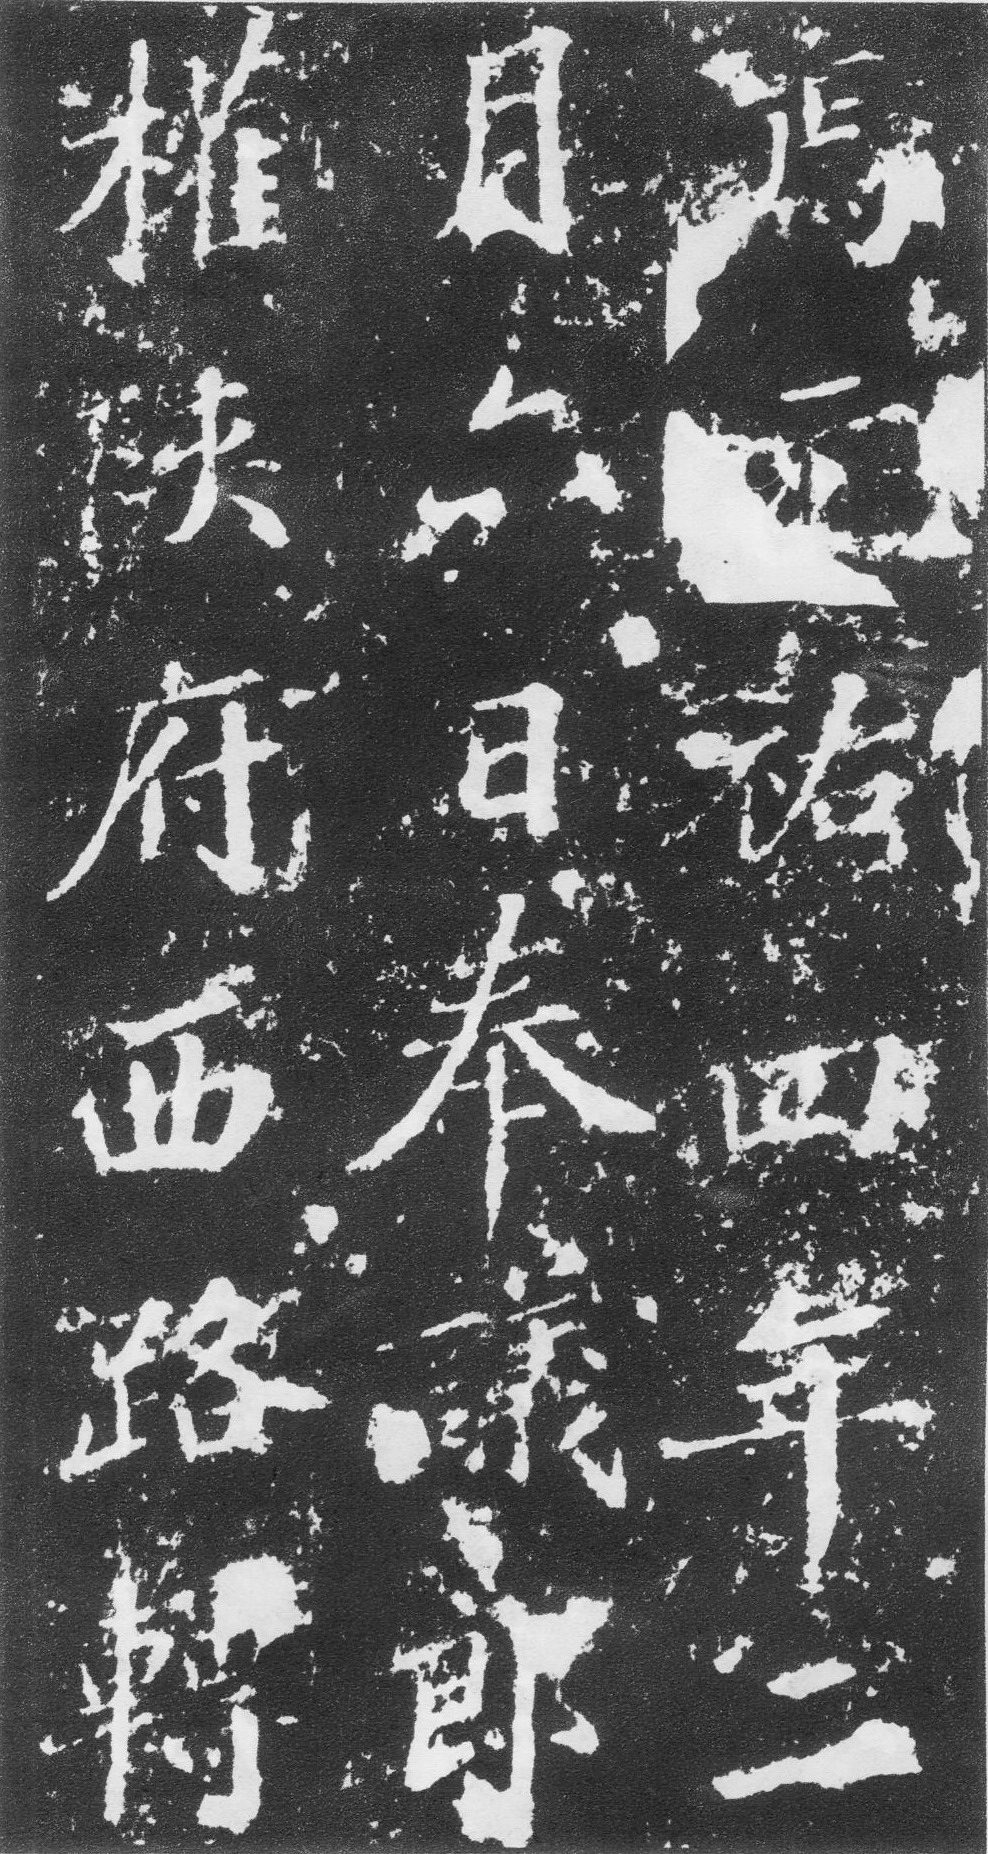 焉祐四年二
月六日奉議郎
權陝府西路轉